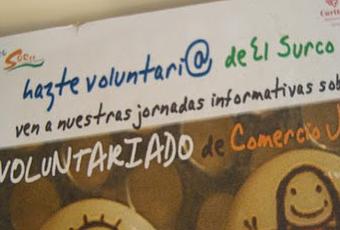 hazte voluntari@ de El Surco
ven a nuestras jornadas informativas sob
VOLUNTARIADO de Comercio J